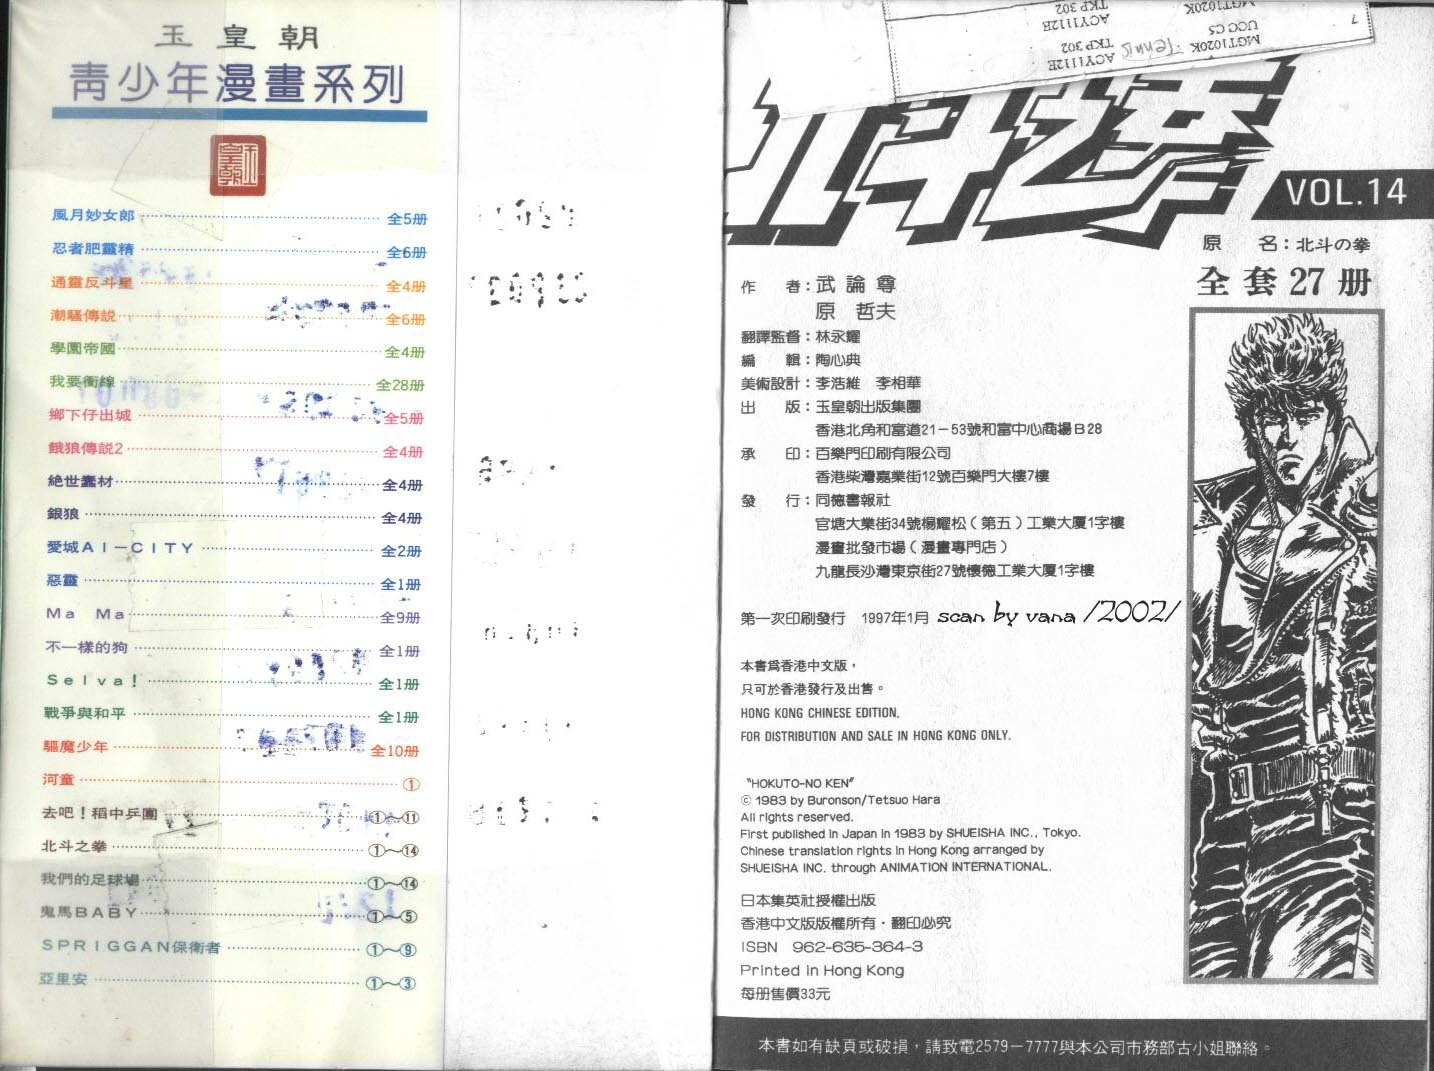 玉皇朝
青少年漫畫系列
玉皇朝
風月妙女郎 全5册
忍者肥靈精 全6册
通靈反斗星 全4册
潮騷傳說 全6册
學園帝國 全4册
我要衝線 全28册
鄉下仔出城 全5册
餓狼傳説2 全4册
絕世蠢材 全4册
銀狼 全4册
愛城AI－CITY 全2册
惡靈 全1册
Ma Ma 全9册
不一樣的狗 全1册
Selva! 全1册
戰爭與和平 全1册
驅魔少年 全10册
河童 ①
去吧！稻中乒團 ①～⑪
北斗之拳 ①～⑭
我們的足球場 ①～⑭
鬼馬BABY ①～⑤
SPRIGGAN保衛者 ①～⑨
亞里安 ①～③
MGT1020K Tennis ACY1112E
UCC C5 TKP 302
MGT1020K ACY1112E
TKP 302
7
北斗之拳
VOL.14
原 名：北斗の拳
全套27册
作 者：武論尊
原 哲夫
翻譯監督：林永耀
編 輯：陶心典
美術設計：李浩維 李相華
出 版：玉皇朝出版集團
香港北角和富道21－53號和富中心商場B28
承 印：百樂門印刷有限公司
香港柴灣嘉業街12號百樂門大樓7樓
發 行：同德書報社
官塘大業街34號楊耀松（第五）工業大廈1字樓
漫畫批發市場（漫畫專門店）
九龍長沙灣東京街27號懷德工業大廈1字樓
第一次印刷發行 1997年1月 scan by vana /2002/
本書爲香港中文版，
只可於香港發行及出售。
HONG KONG CHINESE EDITION,
FOR DISTRIBUTION AND SALE IN HONG KONG ONLY.
"HOKUTO-NO KEN"
© 1983 by Buronson/Tetsuo Hara
All rights reserved.
First published in Japan in 1983 by SHUEISHA INC., Tokyo.
Chinese translation rights in Hong Kong arranged by
SHUEISHA INC. through ANIMATION INTERNATIONAL.
日本集英社授權出版
香港中文版版權所有·翻印必究
ISBN 962-635-364-3
Printed in Hong Kong
每册售價33元
本書如有缺頁或破損，請致電2579－7777與本公司市務部古小姐聯絡。